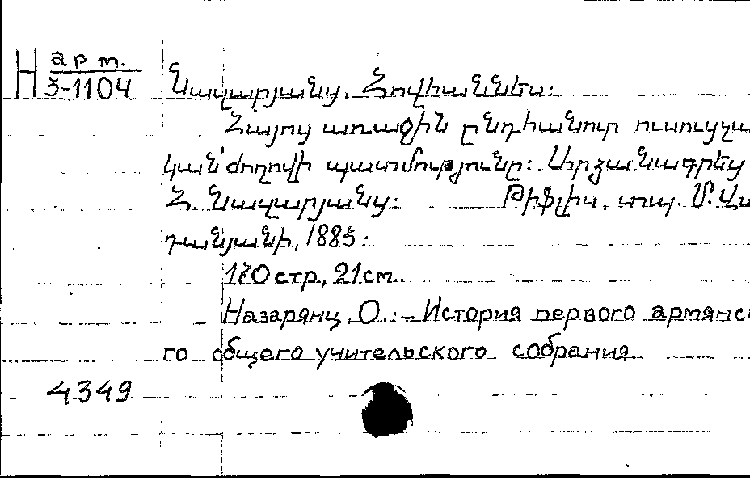 Н арт.
3-1104
Նազարյանց, Հովհաննես:
Հայոց առաջին ընդհանուր ուսուցչա
կան ժողովի պատմությունը: Արձանագրեց
Հ. Նազարյանց: Թիֆլիս, տպ. Մ. Վար
դանյանի, 1885:
170 стр., 21 см.
Назарянц, О. - История первого армянско
го общего учительского собрания
4349